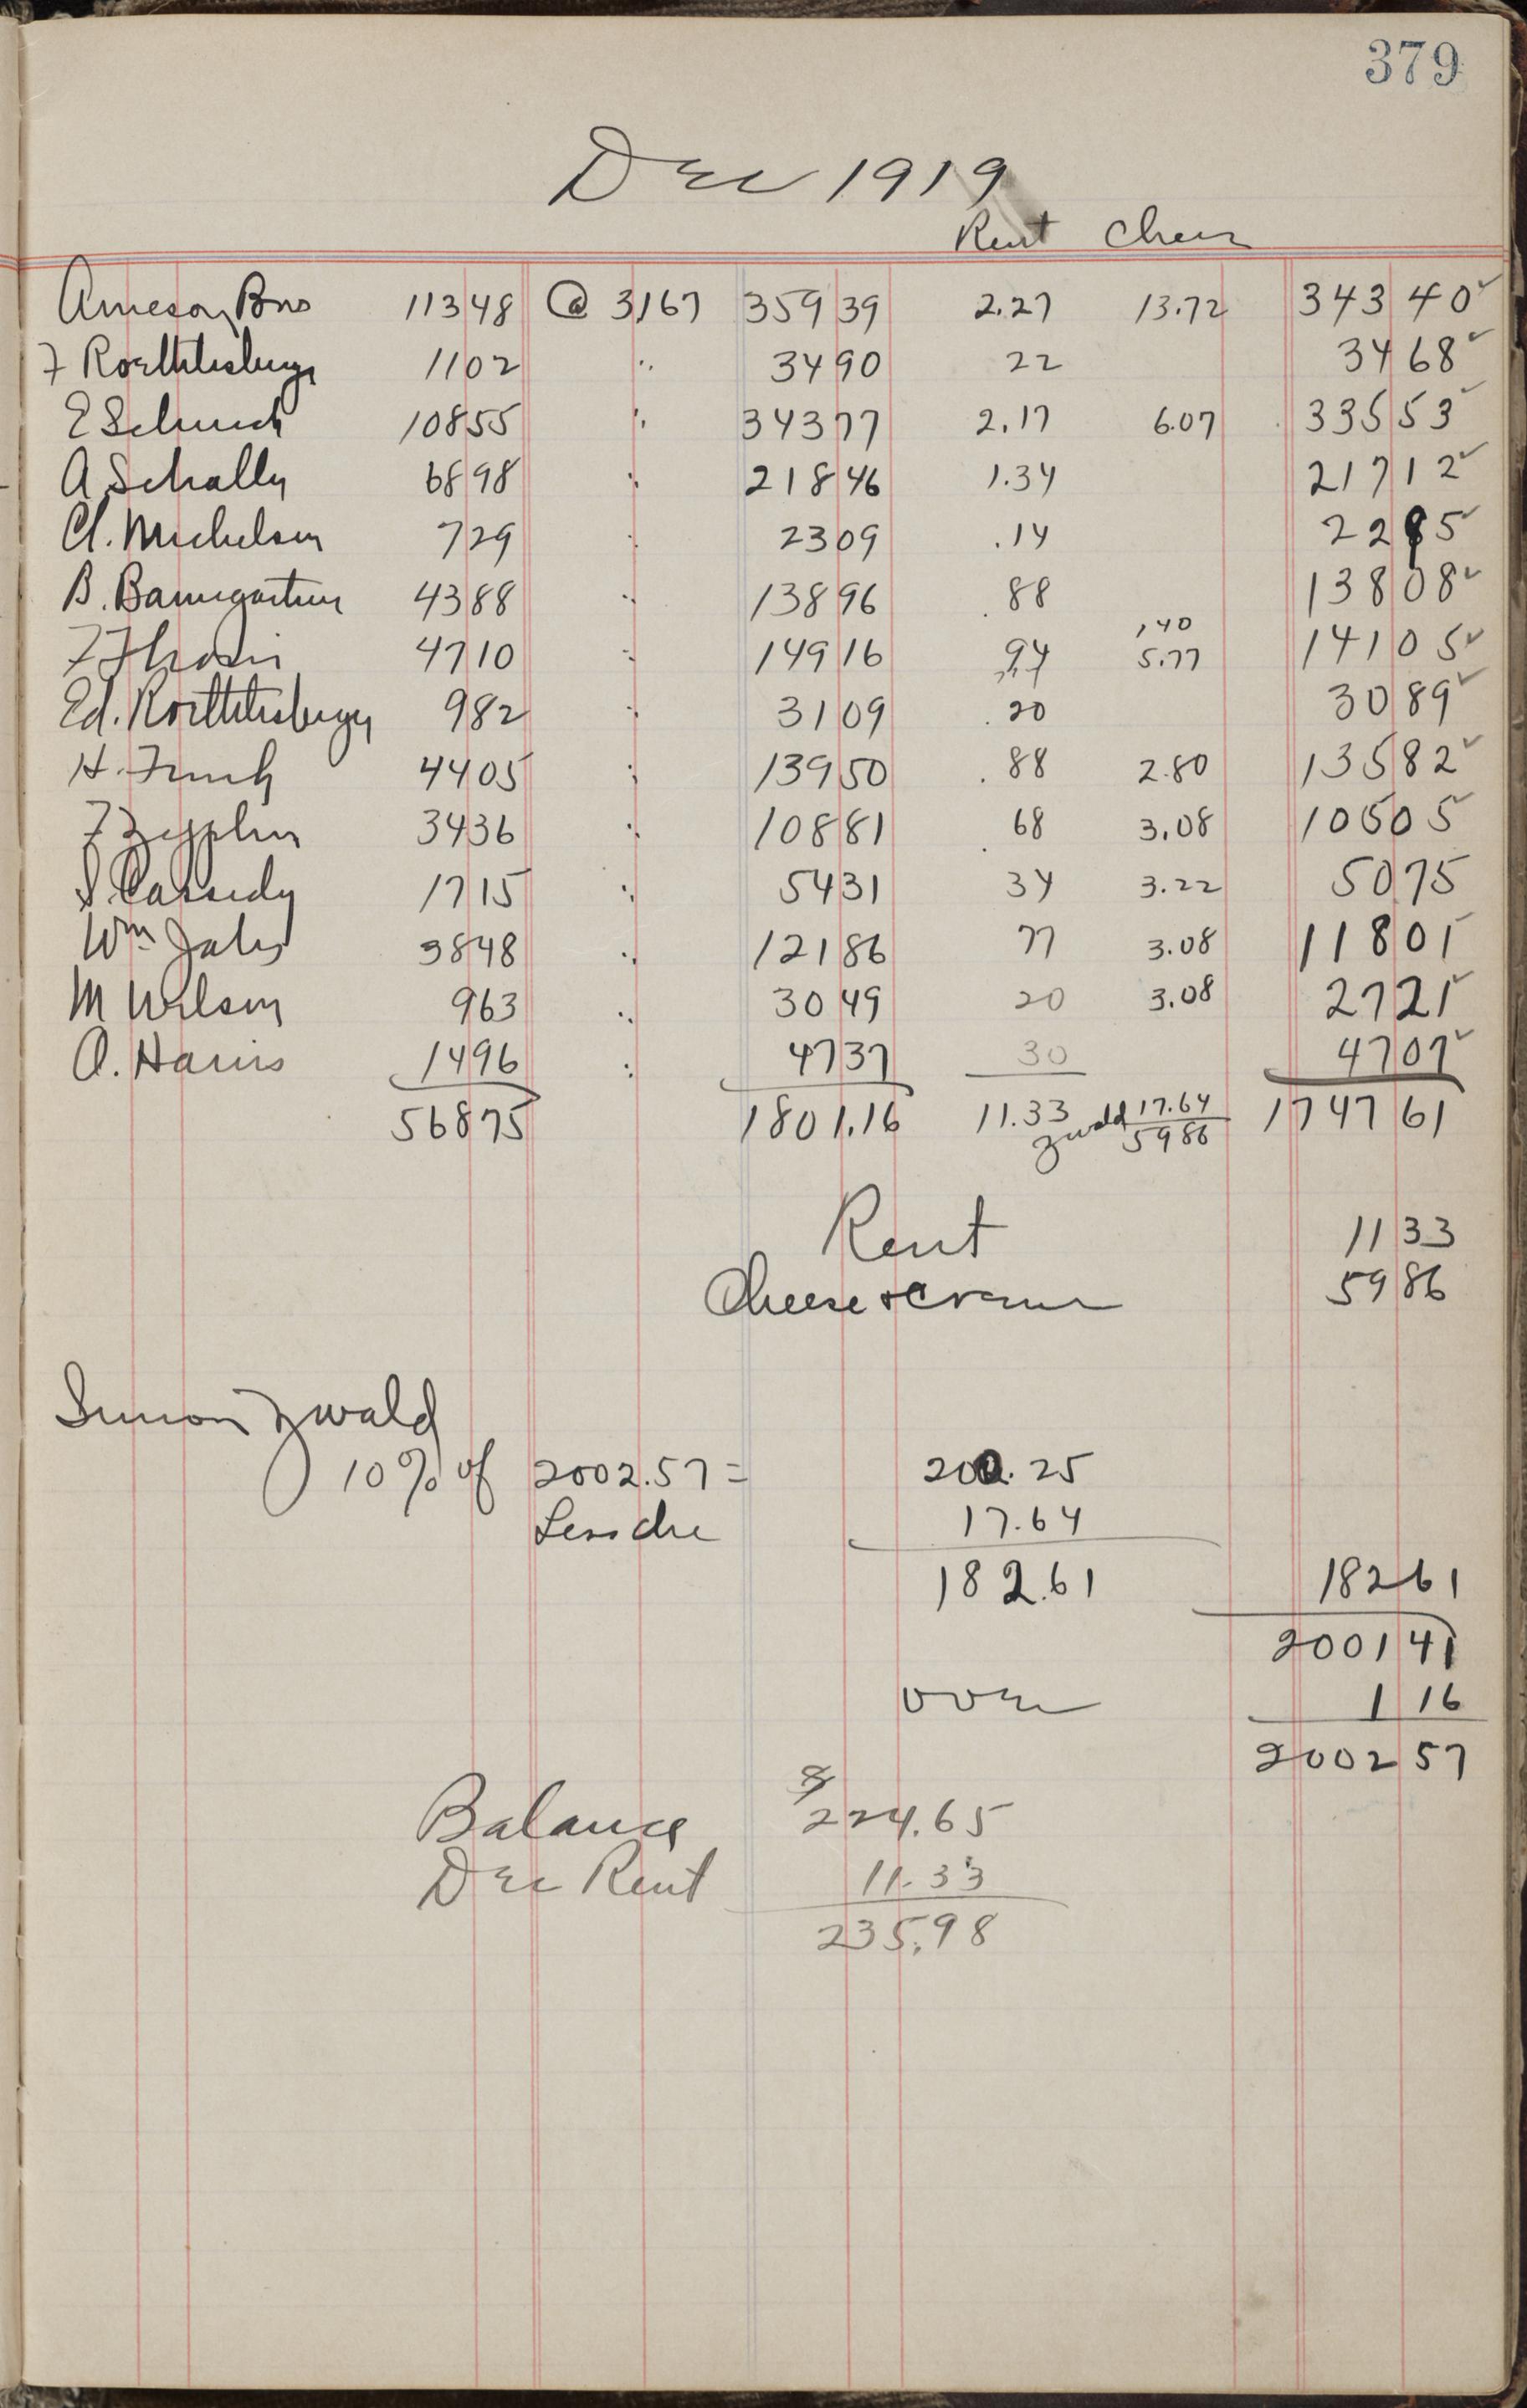 379
Dec 1919
Rent Chees
Arneson Bros 11348 @ 3167 359 39 2.27 13.72 343 40 ✓
F Roethlisberger 1102 " 34 90 22 34 68 ✓
E Schuech 10855 " 343 77 2.17 6.07 335 53 ✓
A Schally 6898 " 218 46 1.34 217 12 ✓
Cl. Michelson 729 " 23 09 .14 22 95 ✓
B. Baumgartner 4388 " 138 96 .88 138 08 ✓
1.40
F 4710 " 149 16 94 5.77 141 05 ✓
Ed. Roethlisberger 982 " 31 09 .20 30 89 ✓
H. Funch 4405 " 139 50 .88 2.80 135 82 ✓
F Zepplin 3436 " 108 81 68 3.08 105 05 ✓
S Cassidy 1715 " 54 31 34 3.22 50 75
Wm Jahs 3848 " 121 86 77 3.08 118 01
M Wilson 963 " 30 49 20 3.08 27 21 ✓
O. Harris 1496 " 47 37 30 47 07 ✓
56875 1801.16 11.33 17.64 1747 61
Zwald 59 86
Rent 11 33
Cheese & Cream 59 86
Simon Zwald
10% of 2002.57 = 200.25
Less che 17.64
182.61 182 61
2001 41
over 1 16
2002 57
Balance $ 224.65
Dec Rent 11.33
235.98